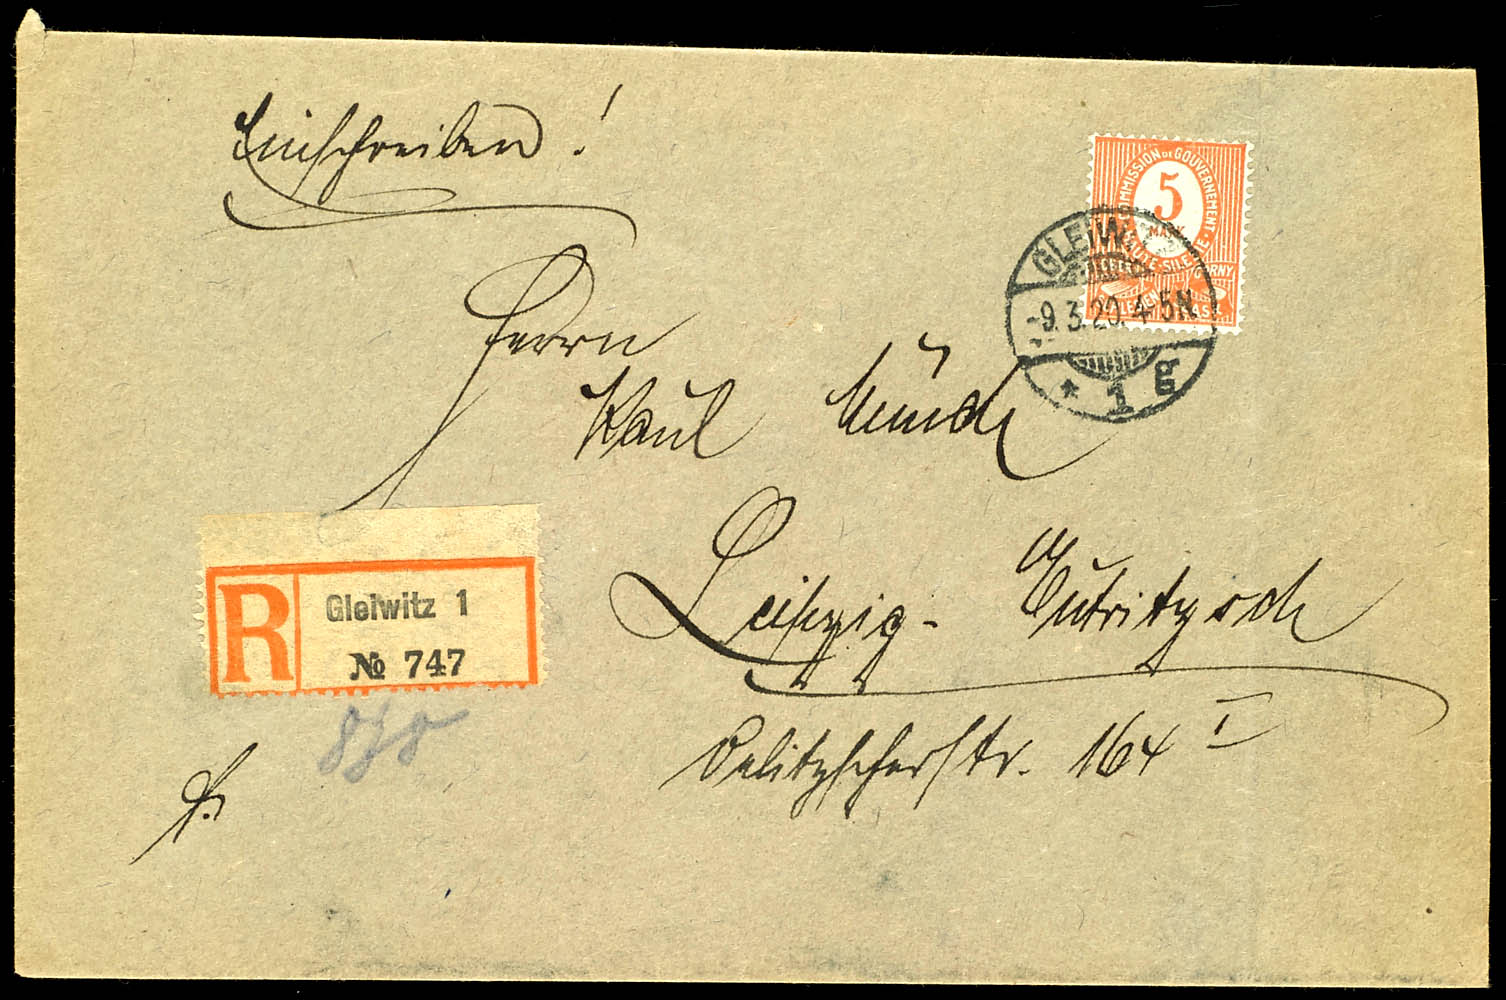 Einschreiben!
COMMISSION DE GOUVERNEMENT · HAUTE · SILESIE ·
5
MARK
GÓRNY
GLEIW
-9.3.20. 4-5N.
* 1 g
Herrn
Paul Münch
Leipzig-Eutritzsch
Delitzscherstr. 164 I
R
Gleiwitz 1
№ 747
fr.